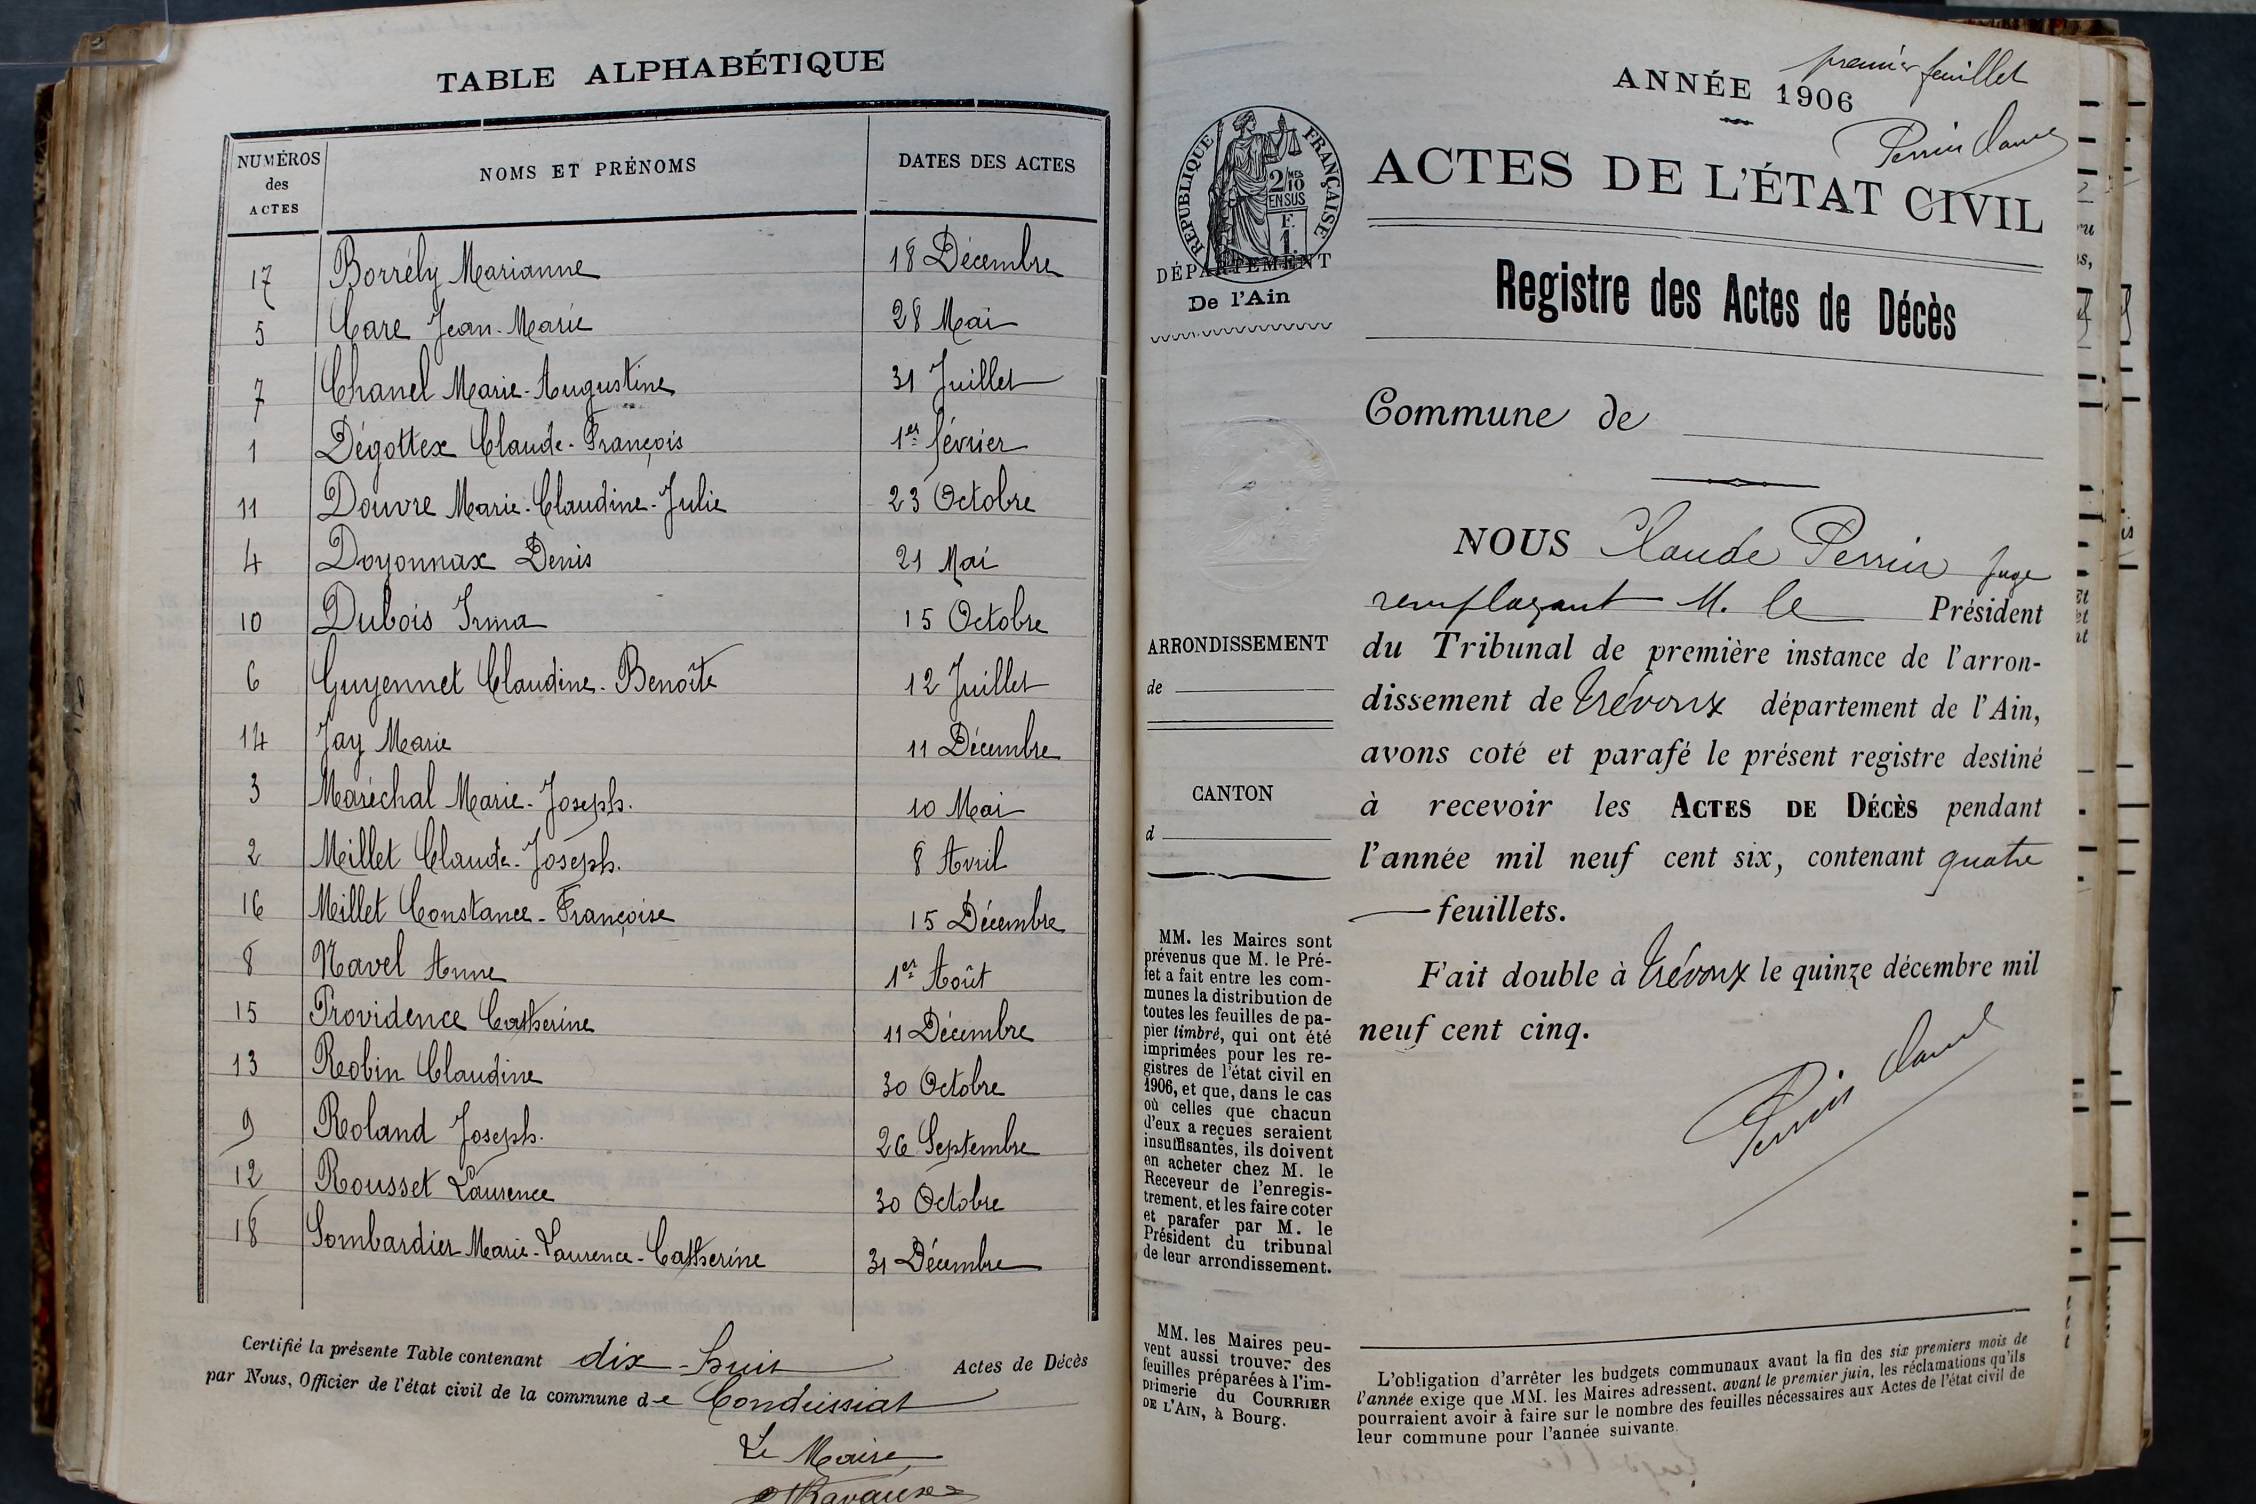 TABLE ALPHABÉTIQUE
NUMÉROS des ACTES NOMS ET PRÉNOMS DATES DES ACTES
17 Borrély Marianne 18 Décembre
5 Care Jean-Marie 28 Mai
7 Chanel Marie-Augustine 31 Juillet
1 Dégottex Claude-François 1er février
11 Douvre Marie-Claudine-Julie 23 Octobre
4 Doyonnax Denis 21 Mai
10 Dubois Irma 15 Octobre
6 Guyennet Claudine-Benoîte 12 Juillet
14 Jay Marie 11 Décembre
3 Maréchal Marie-Joseph. 10 Mai
2 Millet Claude-Joseph. 8 Avril
16 Millet Constance-Françoise 15 Décembre
8 Navel Anne 1er Août
15 Providence Catherine 11 Décembre
13 Robin Claudine 30 Octobre
9 Roland Joseph. 26 Septembre
12 Rousset Laurence 30 Octobre
18 Sombardier Marie-Laurence-Catherine 31 Décembre
Certifié la présente Table contenant dix-huit Actes de Décès
par Nous, Officier de l'état civil de la commune de Condeissiat
Le Maire
premier feuillet
ANNÉE 1906
Perrin Claude
RÉPUBLIQUE FRANÇAISE
2/10 MES
EN SUS
F.
1.
ACTES DE L'ÉTAT CIVIL
DÉPARTEMENT
De l'Ain
Registre des Actes de Décès
Commune de
NOUS Claude Perrin Juge
remplaçant M. le Président
du Tribunal de première instance de l'arron-
dissement de Trévoux département de l'Ain,
avons coté et parafé le présent registre destiné
à recevoir les ACTES DE DÉCÈS pendant
l'année mil neuf cent six, contenant quatre
feuillets.
Fait double à Trévoux le quinze décembre mil
neuf cent cinq.
Perrin Claude
ARRONDISSEMENT
de
CANTON
d
MM. les Maires sont
prévenus que M. le Pré-
fet a fait entre les com-
munes la distribution de
toutes les feuilles de pa-
pier timbré, qui ont été
imprimées pour les re-
gistres de l'état civil en
1906, et que, dans le cas
où celles que chacun
d'eux a reçues seraient
insuffisantes, ils doivent
en acheter chez M. le
Receveur de l'enregis-
trement, et les faire coter
et parafer par M. le
Président du tribunal
de leur arrondissement.
MM. les Maires peu-
vent aussi trouver des
feuilles préparées à l'im-
primerie du COURRIER
DE L'AIN, à Bourg.
L'obligation d'arrêter les budgets communaux avant la fin des six premiers mois de
l'année exige que MM. les Maires adressent, avant le premier juin, les réclamations qu'ils
pourraient avoir à faire sur le nombre des feuilles nécessaires aux Actes de l'état civil de
leur commune pour l'année suivante.